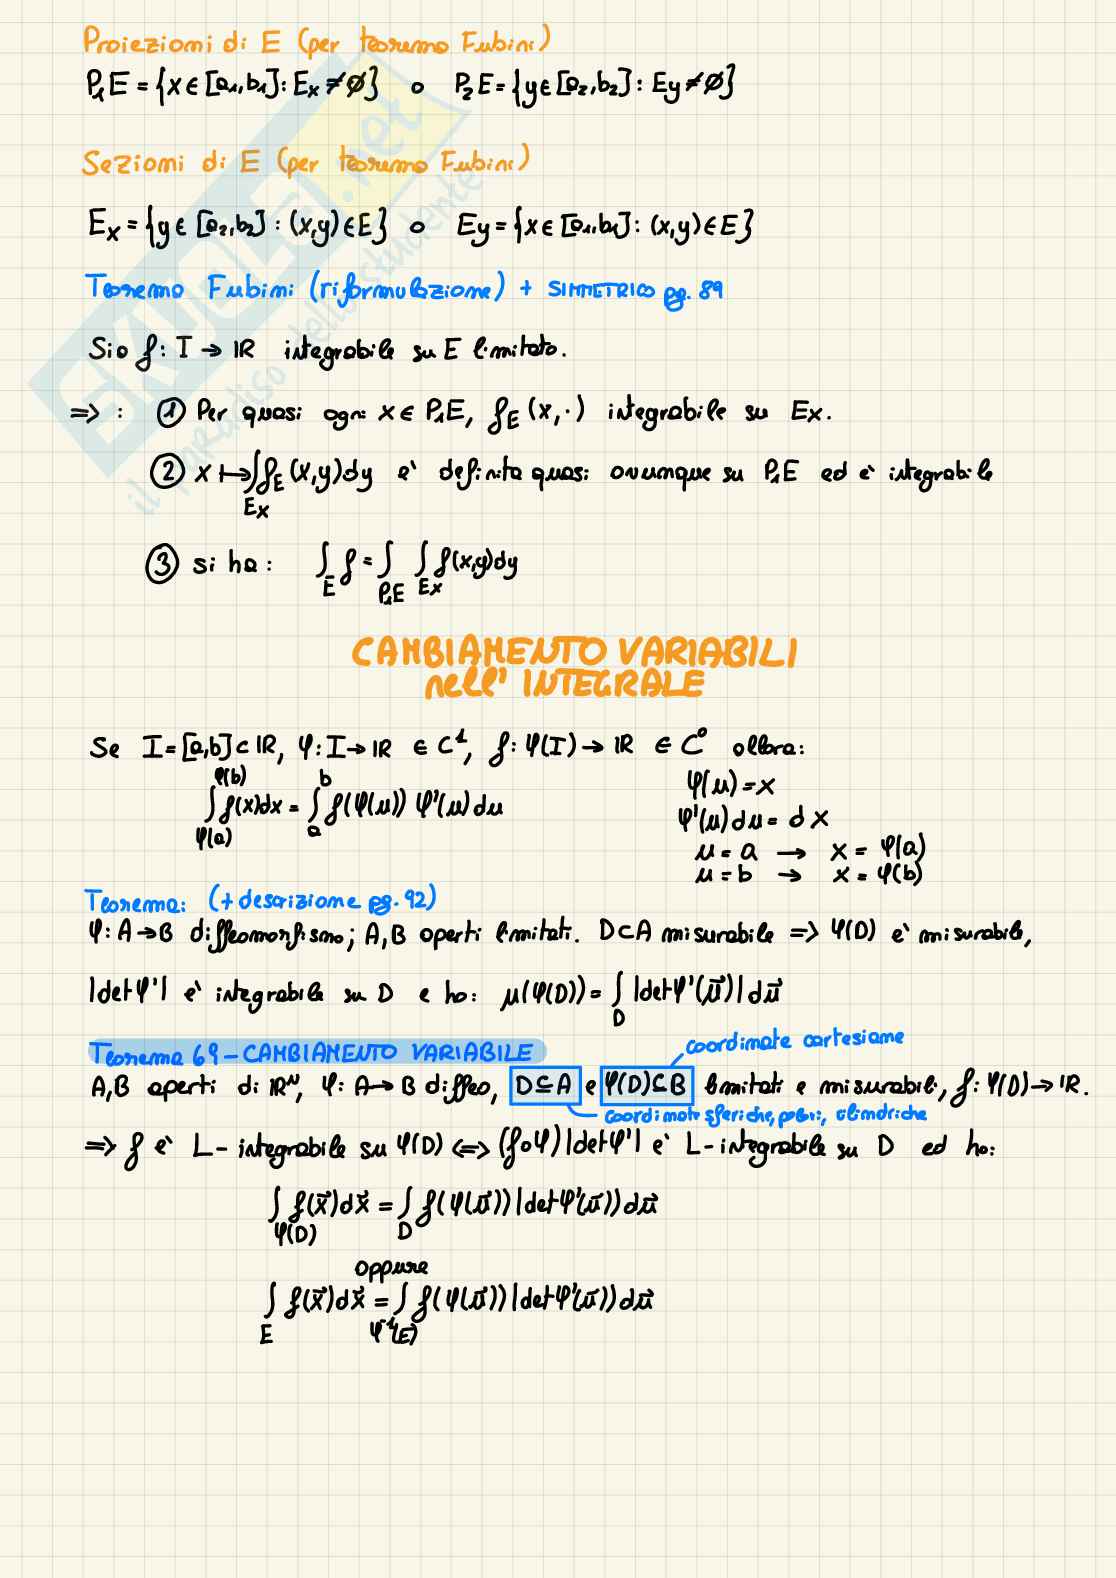 Proiezioni di E (per teorema Fubini)
P₁E = {x ∈ [a₁,b₁]: Eₓ ≠ ∅} o P₂E = {y ∈ [a₂,b₂]: E_y ≠ ∅}
Sezioni di E (per teorema Fubini)
Eₓ = {y ∈ [a₂,b₂] : (x,y) ∈ E} o E_y = {x ∈ [a₁,b₁] : (x,y) ∈ E}
Teorema Fubini (riformulazione) + SIMMETRICO pg. 89
Sia f: I → ℝ integrabile su E limitato.
=> : ① Per quasi ogni x ∈ P₁E, f_E (x, ·) integrabile su Eₓ.
② x ↦ ∫_{Eₓ} f_E (x,y) dy e' definita quasi ovunque su P₁E ed e' integrabile
③ si ha: ∫_E f = ∫_{P₁E} ∫_{Eₓ} f(x,y) dy
CAMBIAMENTO VARIABILI
nell' INTEGRALE
Se I = [a,b] ⊂ ℝ, φ: I → ℝ ∈ C¹, f: φ(I) → ℝ ∈ C⁰ allora:
∫_{φ(a)}^{φ(b)} f(x)dx = ∫_a^b f(φ(u)) φ'(u) du
φ(u) = x
φ'(u) du = dx
u = a → x = φ(a)
u = b → x = φ(b)
Teorema: (+ descrizione pg. 92)
φ: A → B diffeomorfismo; A,B aperti limitati. D ⊂ A misurabile => φ(D) e' misurabile,
|det φ'| e' integrabile su D e ho: μ(φ(D)) = ∫_D |det φ'(u⃗)| du⃗
Teorema 69 - CAMBIAMENTO VARIABILE
coordinate cartesiane
A,B aperti di ℝᴺ, φ: A → B diffeo, D ⊆ A e φ(D) ⊆ B limitati e misurabili, f: φ(D) → ℝ.
coordinate sferiche, polari, cilindriche
=> f e' L-integrabile su φ(D) <=> (f∘φ) |det φ'| e' L-integrabile su D ed ho:
∫_{φ(D)} f(x⃗) dx⃗ = ∫_D f(φ(u⃗)) |det φ'(u⃗)) du⃗
oppure
∫_E f(x⃗) dx⃗ = ∫_{φ⁻¹(E)} f(φ(u⃗)) |det φ'(u⃗)) du⃗
SKUOLA.net
il paradiso dello studente